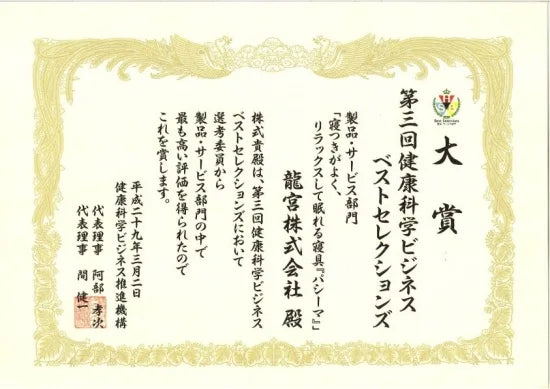 大賞
第三回健康科学ビジネス
ベストセレクションズ
製品・サービス部門
「寝つきがよく、
リラックスして眠れる寝具『パシーマ』」
龍宮株式会社 殿
株式貴殿は、第三回健康科学ビジネス
ベストセレクションズにおいて
選考委員から
製品・サービス部門の中で
最も高い評価を得られたので
これを賞します。
平成二十九年三月二日
健康科学ビジネス推進機構
代表理事 阿部 孝次
代表理事 間 健一